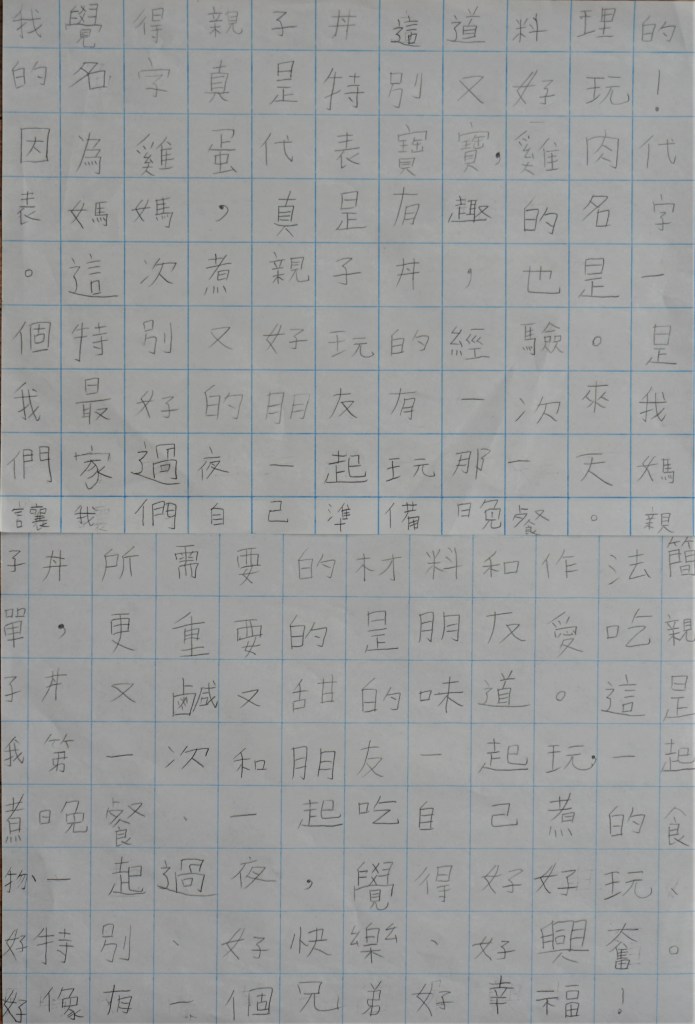 我覺得親子丼這道料理的
的名字真是特別又好玩！
因為雞蛋代表寶寶，雞肉代
表媽媽，真是有趣的名字
。這次煮親子丼，也是一
個特別又好玩的經驗。是
我最好的朋友有一次來我
們家過夜一起玩那一天媽
讓我們自己準備晚餐。親
子丼所需要的材料和作法簡
單，更重要的是朋友愛吃親
子丼又鹹又甜的味道。這是
我第一次和朋友一起玩，一起
煮晚餐、一起吃自己煮的食
物、一起過夜，覺得好好玩、
好特別、好快樂、好興奮。
好像有一個兄弟好幸福！